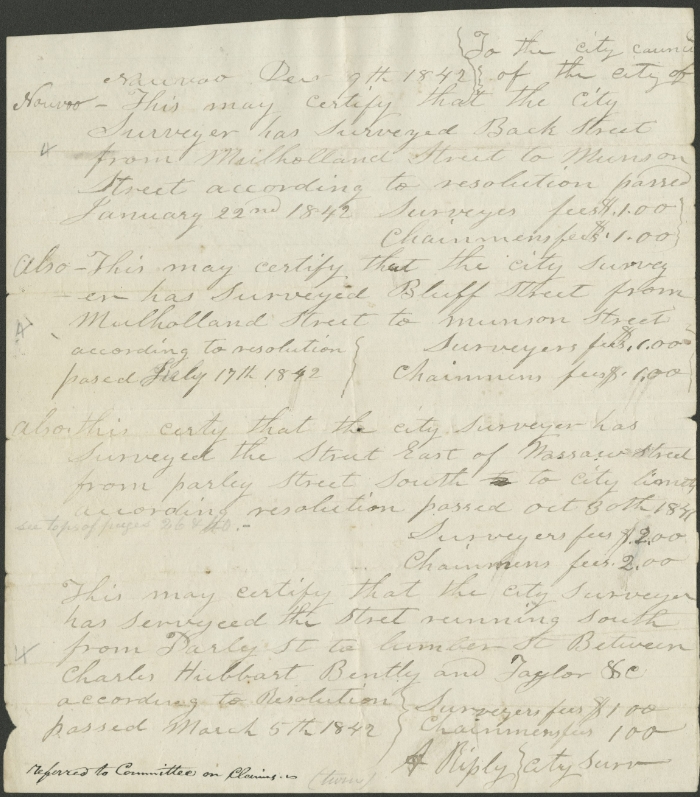 To the city council
Nauvoo Dec 9th 1842 of the city of
Nouvoo - This may certify that the City
Surveyer has Surveyed Back Street
from Mulholland Street to Munson
Street according to resolution passed
January 22nd 1842 Surveyers fees $.1.00
Chainmens fees $.1.00
Also - This may certify that the city Survey
-er has Surveyed Bluff Street from
Mulholland Street to munson Street
according to resolution Surveyers fees $.1.00
pased July 17th 1842 Chainmens fees $.1.00
also this certy that the city Surveyer has
Surveyed the Street East of Warsaw Street
from parley Street South to city limets
according resolution passed oct 30th 1841
see top of pages 26 & 40.-
Surveyers fees $.2.00
Chainmens fees. 2.00
This may certify that the city Surveyer
has Serveyeed the Stret running South
from Parly St to lumber St Between
Charles Hubbart Bently and Taylor &c
according to Resolution Surveyers fees $1 00
passed March 5th 1842 Chainmens fees 1 00
A Riply city Surv
referred to Committee on Claims.
(turn)